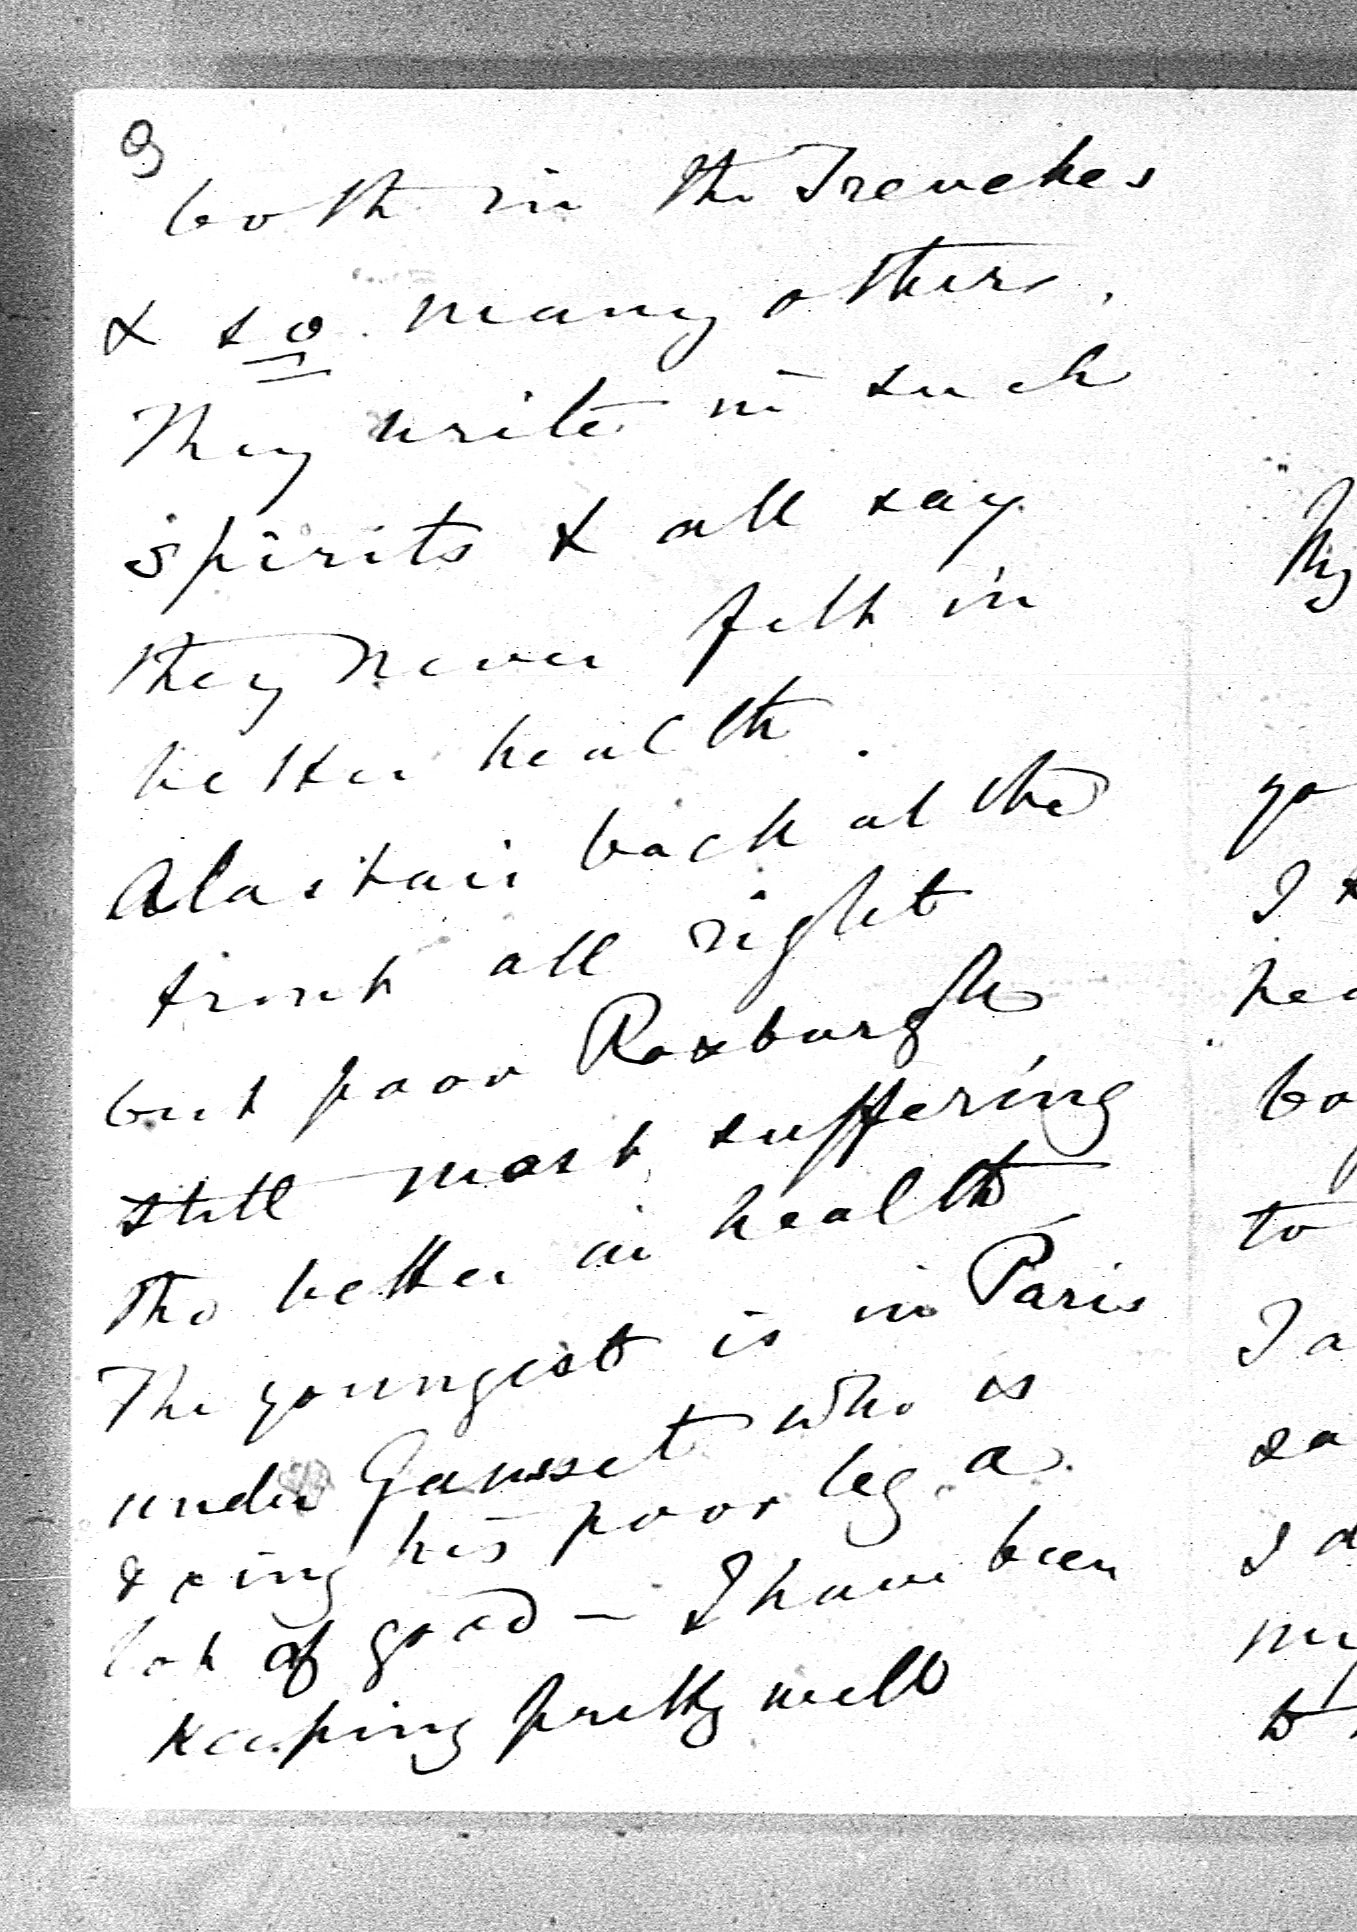 3
both in the Trenches
& so many others.
They write in such
spirits & all say
they never felt in
better health.
Alastair back at the
front all right
but poor Roxburgh
still most suffering
tho better in health
The youngest is in Paris
under who is
his poor leg a
lot of good – I have been
keeping pretty well
My
yo
I
hea
bo
to
I a
sa
I d
my